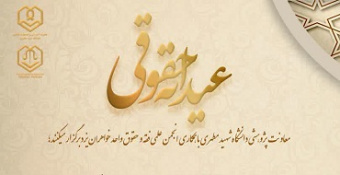 عیدانه حقوقی
معاونت پژوهشی دانشگاه شهید مطهری با همکاری انجمن علمی فقه و حقوق واحد خواهران یزد برگزار میکنند: